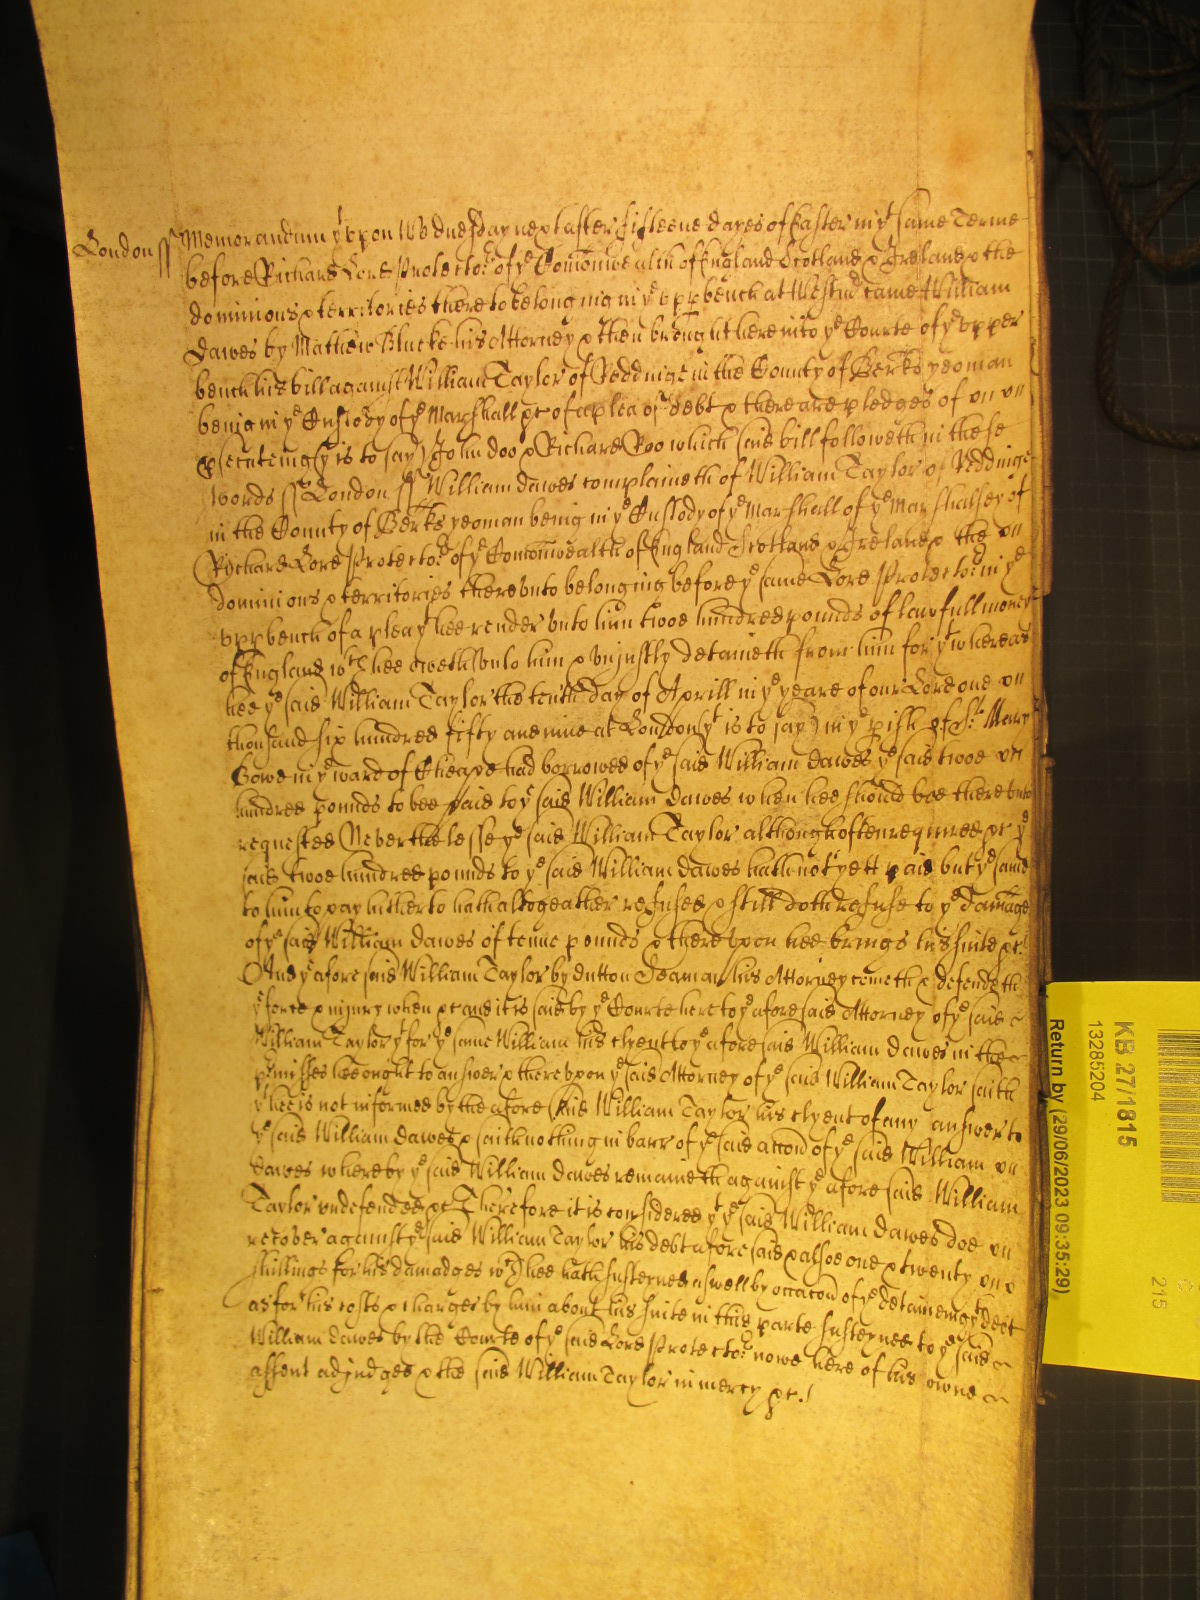 London ss Memorandum yt vpon Wednesday next after fifteene dayes of Easter in ye same Terme
before Richard Lord Protector of ye Comonwealth of England Scotland & Ireland & the
dominions & territories thereto belonging in ye vpp bench at Westmr came William
Dawes by Mathew Blucke his Attorney & then brought here into ye Courte of ye vpper
bench his bill against William Taylor of Reddinge in the County of Berks yeoman
being in ye Custody of ye Marshall &c of a plea of debt & there are pledges of
psecuting (yt is to say) John doo & Richard Roo which said bill followeth in these
words ss London ss William Dawes complaineth of William Taylor of Reddinge
in the County of Berks yeoman being in ye Custody of ye Marshall of ye Marshalsey of
Richard Lord Protector of ye Comonwealth of England Scotland & Ireland & the
dominions & territories therevnto belonging before ye same Lord Protector in ye
vpp bench of a plea yt hee render vnto him twoe hundred pounds of lawfull money
of England wch hee oweth vnto him & vnjustly detaineth from him for yt whereas
hee ye said William Taylor the tenth day of Aprill in ye yeare of our Lord one
thousand six hundred fifty and nine at London (yt is to say) in ye pish of St Mary
Bowe in ye ward of Cheape had borrowed of ye said William Dawes ye said twoe
hundred pounds to bee paid to ye said William Dawes when hee should bee therevnto
requested Neverthelesse ye said William Taylor although often required &c ye
said twoe hundred pounds to ye said William Dawes hath not yett paid but ye same
to him to pay hitherto hath altogeather refused & still doth refuse to ye damage
of ye said William Dawes of tenne pounds & therevpon hee brings his suite &c
And ye aforesaid William Taylor by Dutton Seaman his Attorney cometh & defendeth
ye force & injury when &c and it is said by ye Courte here to ye aforesaid Attorney of ye said
William Taylor yt for ye same William his clyent to ye aforesaid William Dawes in the
pmisses hee ought to answer & therevpon ye said Attorney of ye said William Taylor saith
yt hee is not informed by the aforesaid William Taylor his clyent of any answer to
ye said William Dawes & saith nothing in barr of ye said accon of ye said William
Dawes whereby ye said William Dawes remaineth against ye aforesaid William
Taylor vndefended &c Therefore it is considered yt ye said William Dawes doe
recover against ye said William Taylor his debt aforesaid & alsoe one & twenty
shillings for his damadges wch hee hath susteyned aswell by occacon of ye deteineing yt debt
as for his costs & charges by him about his suite in this parte susteyned to ye said
William Dawes by the Courte of ye said Lord Protector nowe here of his owne
assent adjudged & the said William Taylor in mercy &c
KB 27/1815
13285204
Return by (29/06/2023 09:35:29)
215